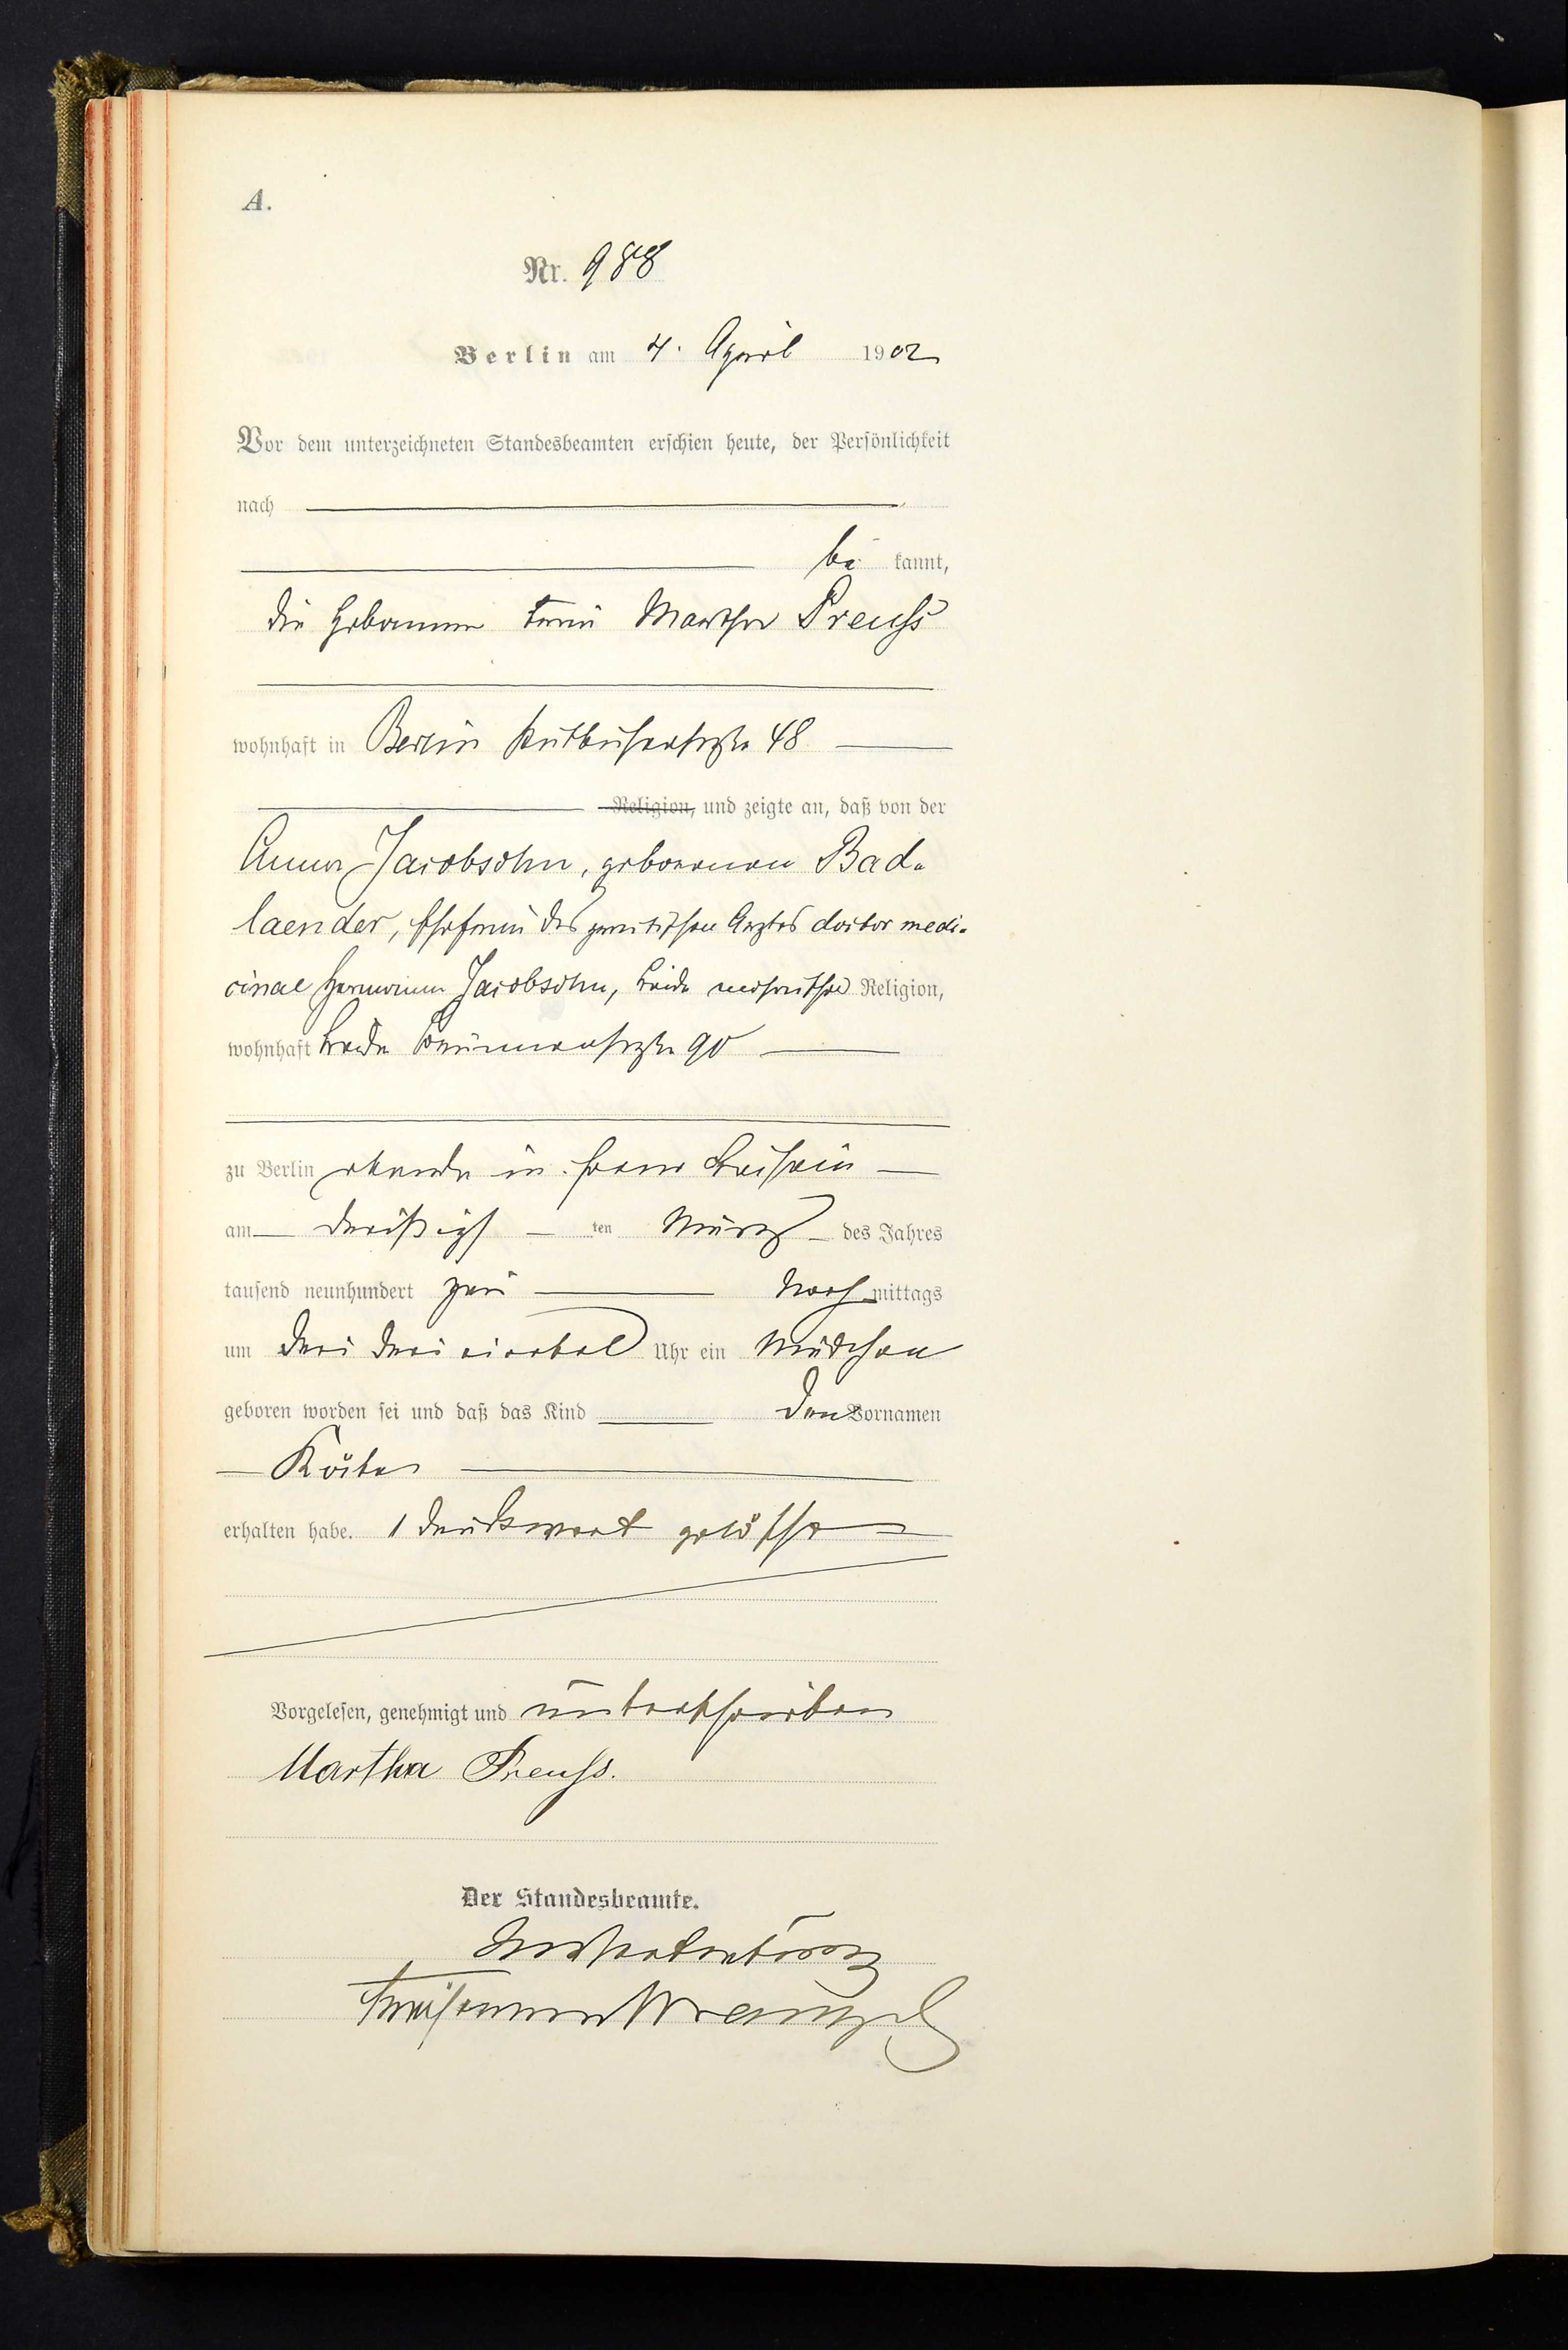 A.
Nr. 988
Berlin am 4. April 1902
Vor dem unterzeichneten Standesbeamten erschien heute, der Persönlichkeit
nach
be kannt,
die Hebamme Frau Martha Preuß
wohnhaft in Berlin Putbuserstraße 48
Religion, und zeigte an, daß von der
Anna Jacobsohn, geborenen Bad-
laender, Ehefrau des praktischen Arztes doctor medi-
cinae Hermann Jacobsohn, beide mosaischer Religion,
wohnhaft beide Brunnenstraße 90
zu Berlin ebenda in ihrer Behausung
am dreißigsten März des Jahres
tausend neunhundert zwei Nachmittags
um drei drei viertel Uhr ein Mädchen
geboren worden sei und daß das Kind den Vornamen
Käte
erhalten habe. 1 Druckwort gelöscht
Vorgelesen, genehmigt und unterschrieben
Martha Preuß.
Der Standesbeamte.
In Vertretung